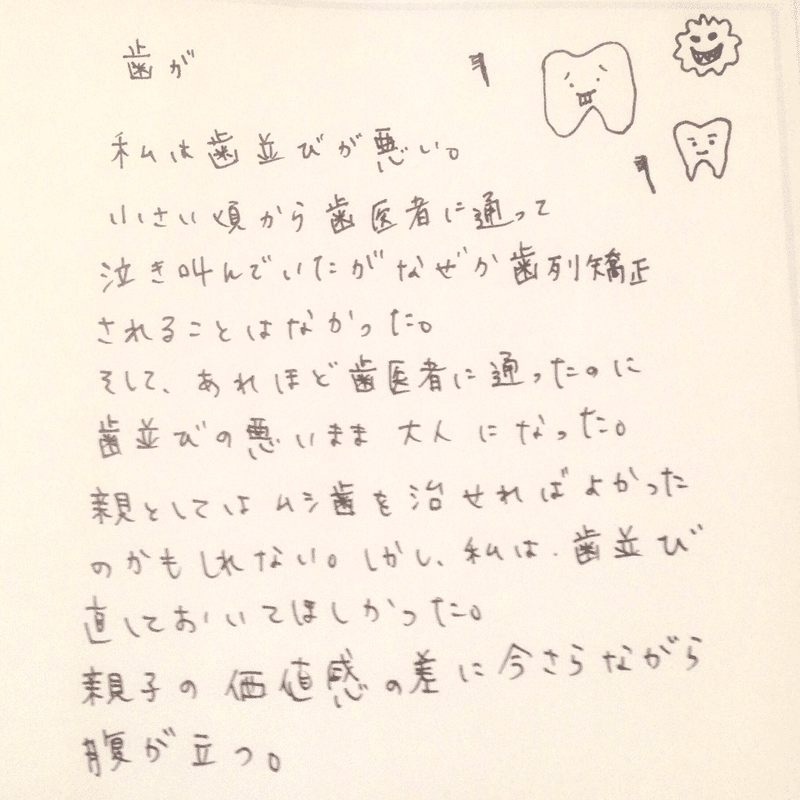 歯が
私は歯並びが悪い。
小さい頃から歯医者に通って
泣き叫んでいたがなぜか歯列矯正
されることはなかった。
そして、あれほど歯医者に通ったのに
歯並びの悪いまま大人になった。
親としてはムシ歯を治せればよかった
のかもしれない。しかし、私は、歯並び
直しておいてほしかった。
親子の価値感の差に今さらながら
腹が立つ。